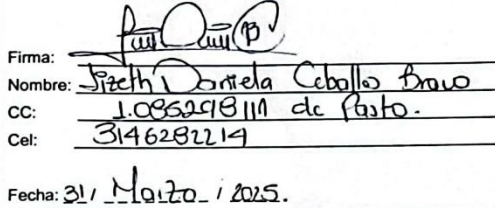 Firma:
Nombre: Jizeth Daniela Ceballos Bravo
CC: 1.085298111 de Pasto.
Cel: 3146282214
Fecha: 31 / Marzo / 2025.